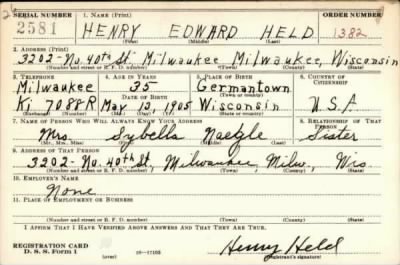 SERIAL NUMBER 1. NAME (Print) ORDER NUMBER
2581 HENRY EDWARD HELD 1382
(First) (Middle) (Last)
2. ADDRESS (Print)
3202-No. 40th St. Milwaukee Milwaukee, Wisconsin
(Number and street or R. F. D. number) (Town) (County) (State)
3. TELEPHONE 4. AGE IN YEARS 5. PLACE OF BIRTH 6. COUNTRY OF CITIZENSHIP
Milwaukee 35 Germantown
DATE OF BIRTH (Town or county)
Ki 7088R May 13, 1905 Wisconsin U.S.A
(Exchange) (Number) (Mo.) (Day) (Yr.) (State or country)
7. NAME OF PERSON WHO WILL ALWAYS KNOW YOUR ADDRESS 8. RELATIONSHIP OF THAT PERSON
Mrs. Sybella Naegle Sister
(Mr., Mrs., Miss) (First) (Middle) (Last)
9. ADDRESS OF THAT PERSON
3202- No. 40th St, Milwaukee, Milw, Wis.
(Number and street or R. F. D. number) (Town) (County) (State)
10. EMPLOYER'S NAME
None
11. PLACE OF EMPLOYMENT OR BUSINESS
(Number and street or R. F. D. number) (Town) (County) (State)
I AFFIRM THAT I HAVE VERIFIED ABOVE ANSWERS AND THAT THEY ARE TRUE.
REGISTRATION CARD
D. S. S. Form 1 (over) 16-17105 Henry Held
(Registrant's signature)